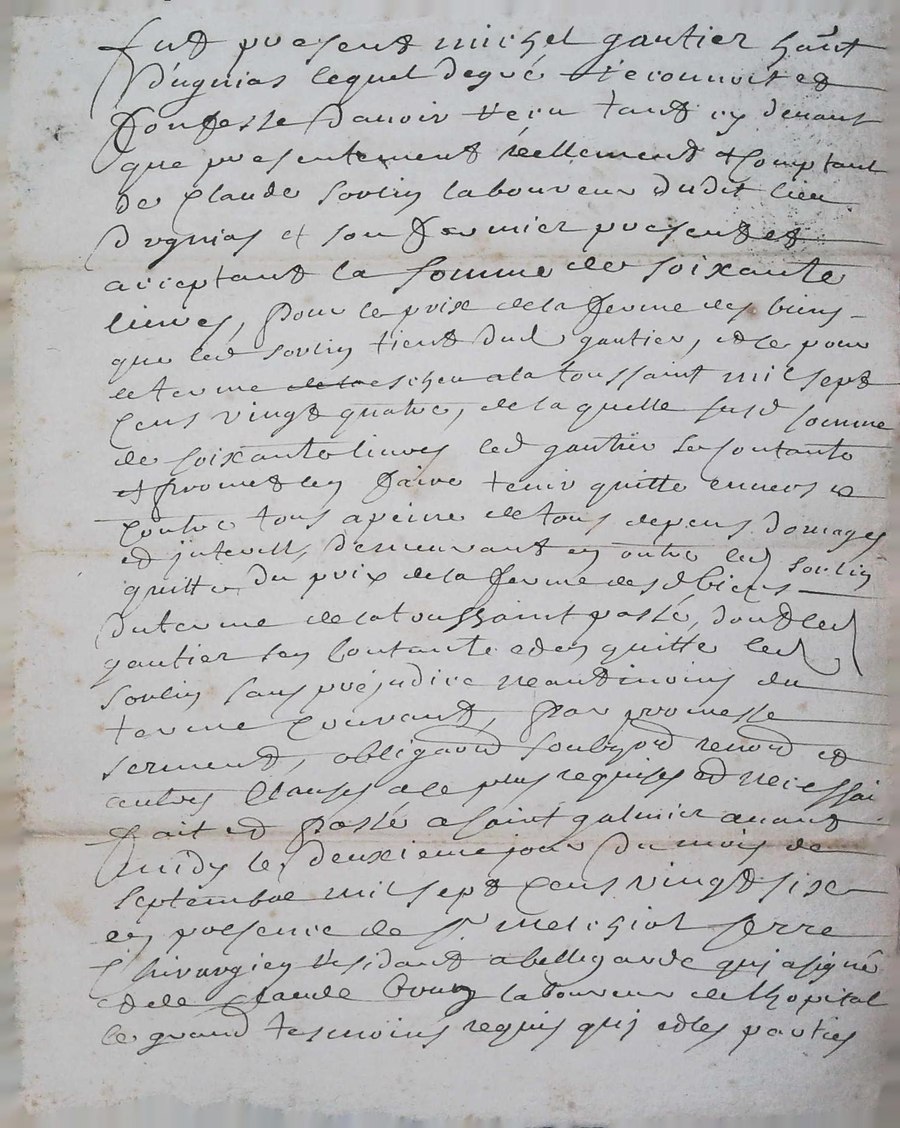 fut present michel gautier hant
d'ugnias lequel degré reconnoit et
Confesse d'avoir receu tant cy devant
que presentement réellement et Comptant
de Claude soulin laboureur dudit lieu
dugnias et son fermier present et
acceptant la somme de soixante
livres, pour le prix de la ferme des biens
que led soulin tient dud gautier, et ce pour
le terme escheu a la toussaint mil sept
Cens vingt quatre, de laquelle susd somme
de soixante livres led gautier se contante
et promet len faire tenir quitte envers et
Contre tous a peine de tous depens domages
et interests, demeurant en outre led soulin
quitte du prix de la ferme desd biens
du terme de la toussaint passé, dont led
gautier sen Contante et en quitte led
soulin sans préjudice neantmoins du
terme Courant, par promesse
serment, obligaon soubzon renon et
autres Clauses a ce plus requises et necessai
fait et passé a saint galmier avant
midy le deuxieme jour du mois de
septembre mil sept Cens vingt six
en presence de sr melchior serre
Chirurgien residant a bellegarde qui a signé
et de Claude laboureur de lhopital
le grand tesmoins requis qui et les parties